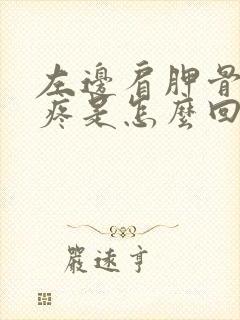 左邊肩胛骨
疼是怎麼回
嚴遠亨